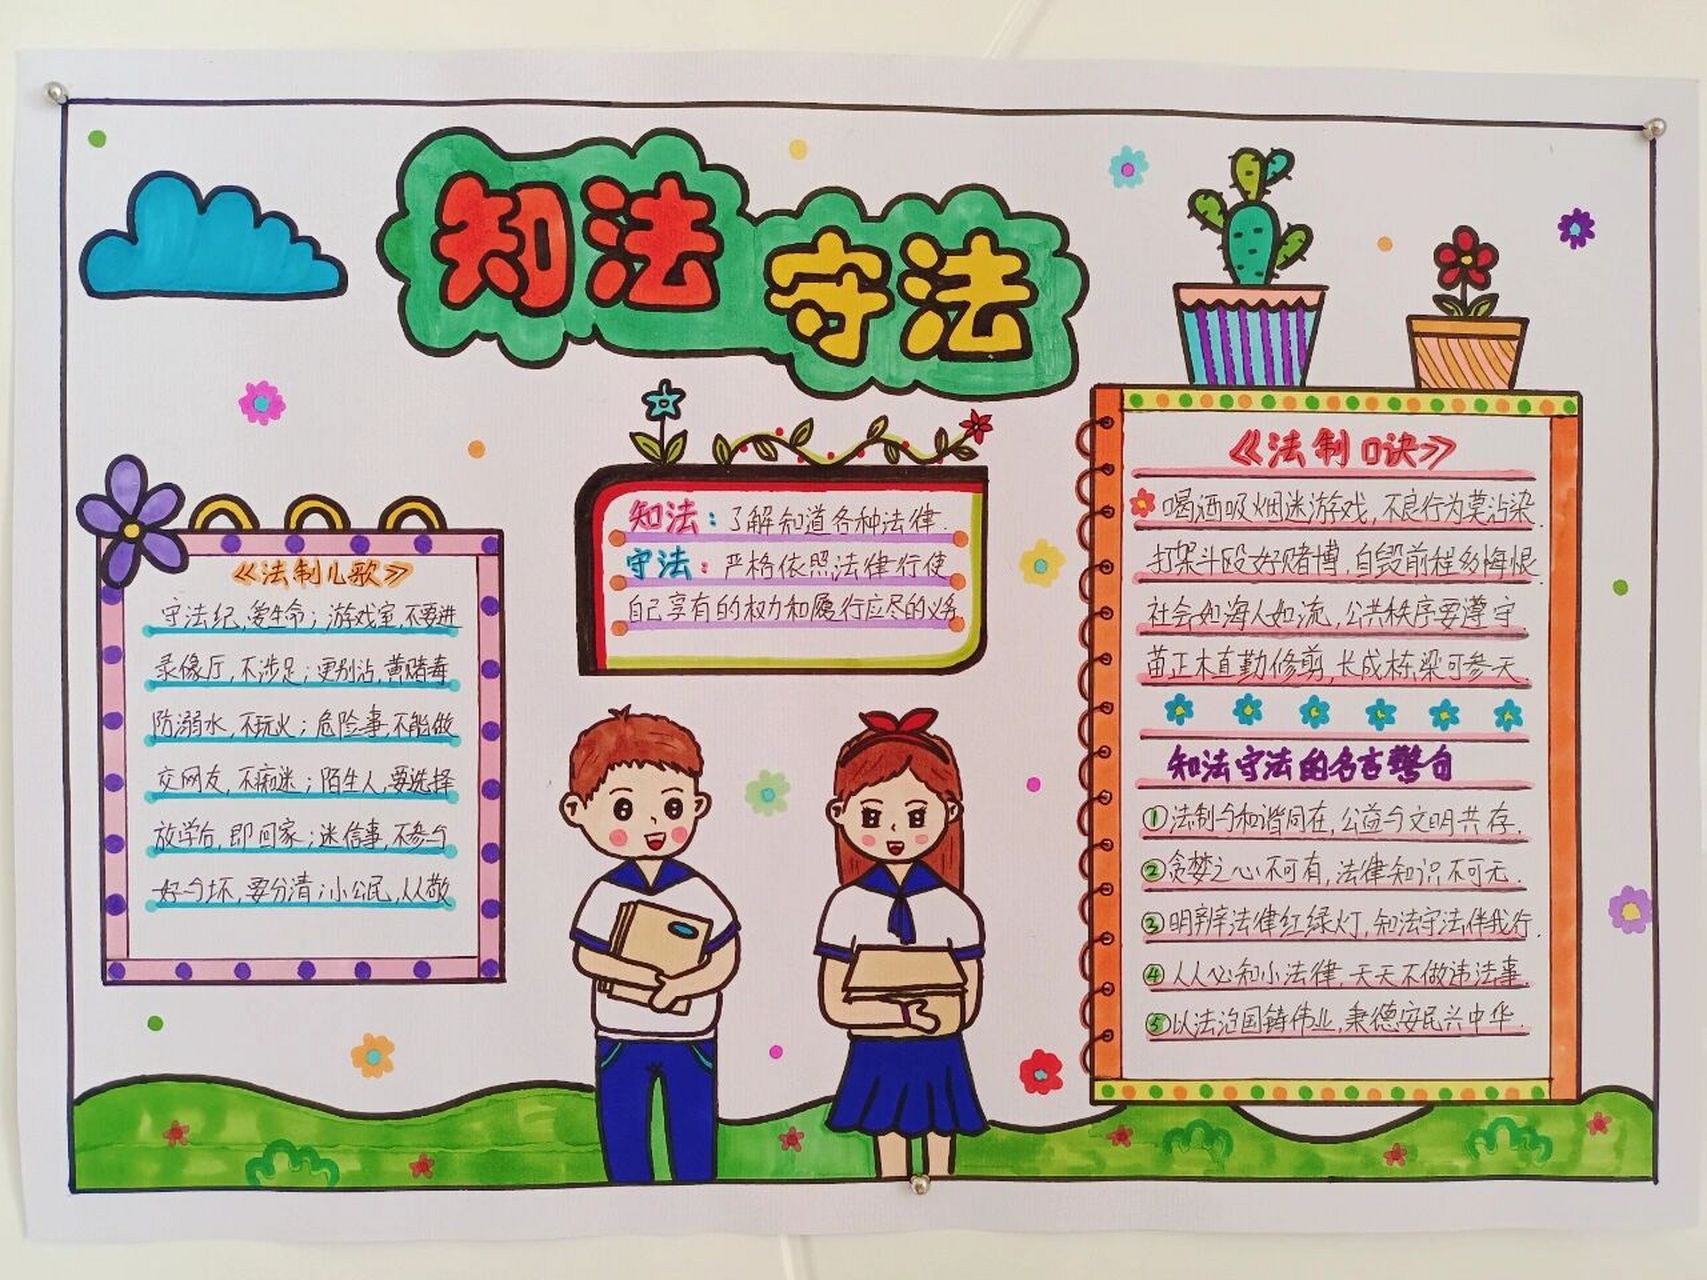 知法
守法
知法：了解知道各种法律.
守法：严格依照法律行使
自己享有的权力和履行应尽的义务
《法制儿歌》
守法纪,爱生命；游戏室,不要进
录像厅,不涉足；更别沾,黄赌毒
防溺水,不玩火；危险事,不能做
交网友,不痴迷；陌生人,要选择
放学后,即回家；迷信事,不参与
好与坏,要分清；小公民,从从敬
《法制口诀》
喝酒吸烟迷游戏,不良行为莫沾染.
打架斗殴好赌博,自毁前程多悔恨
社会如海人如流,公共秩序要遵守
苗正木直勤修剪,长成栋梁可参天
知法守法的名言警句
①法制与和谐同在,公益与文明共存.
②贪婪之心不可有,法律知识不可无.
③明辨法律红绿灯,知法守法伴我行.
④人人必知小法律,天天不做违法事.
⑤以法治国铸伟业,秉德安民兴中华.